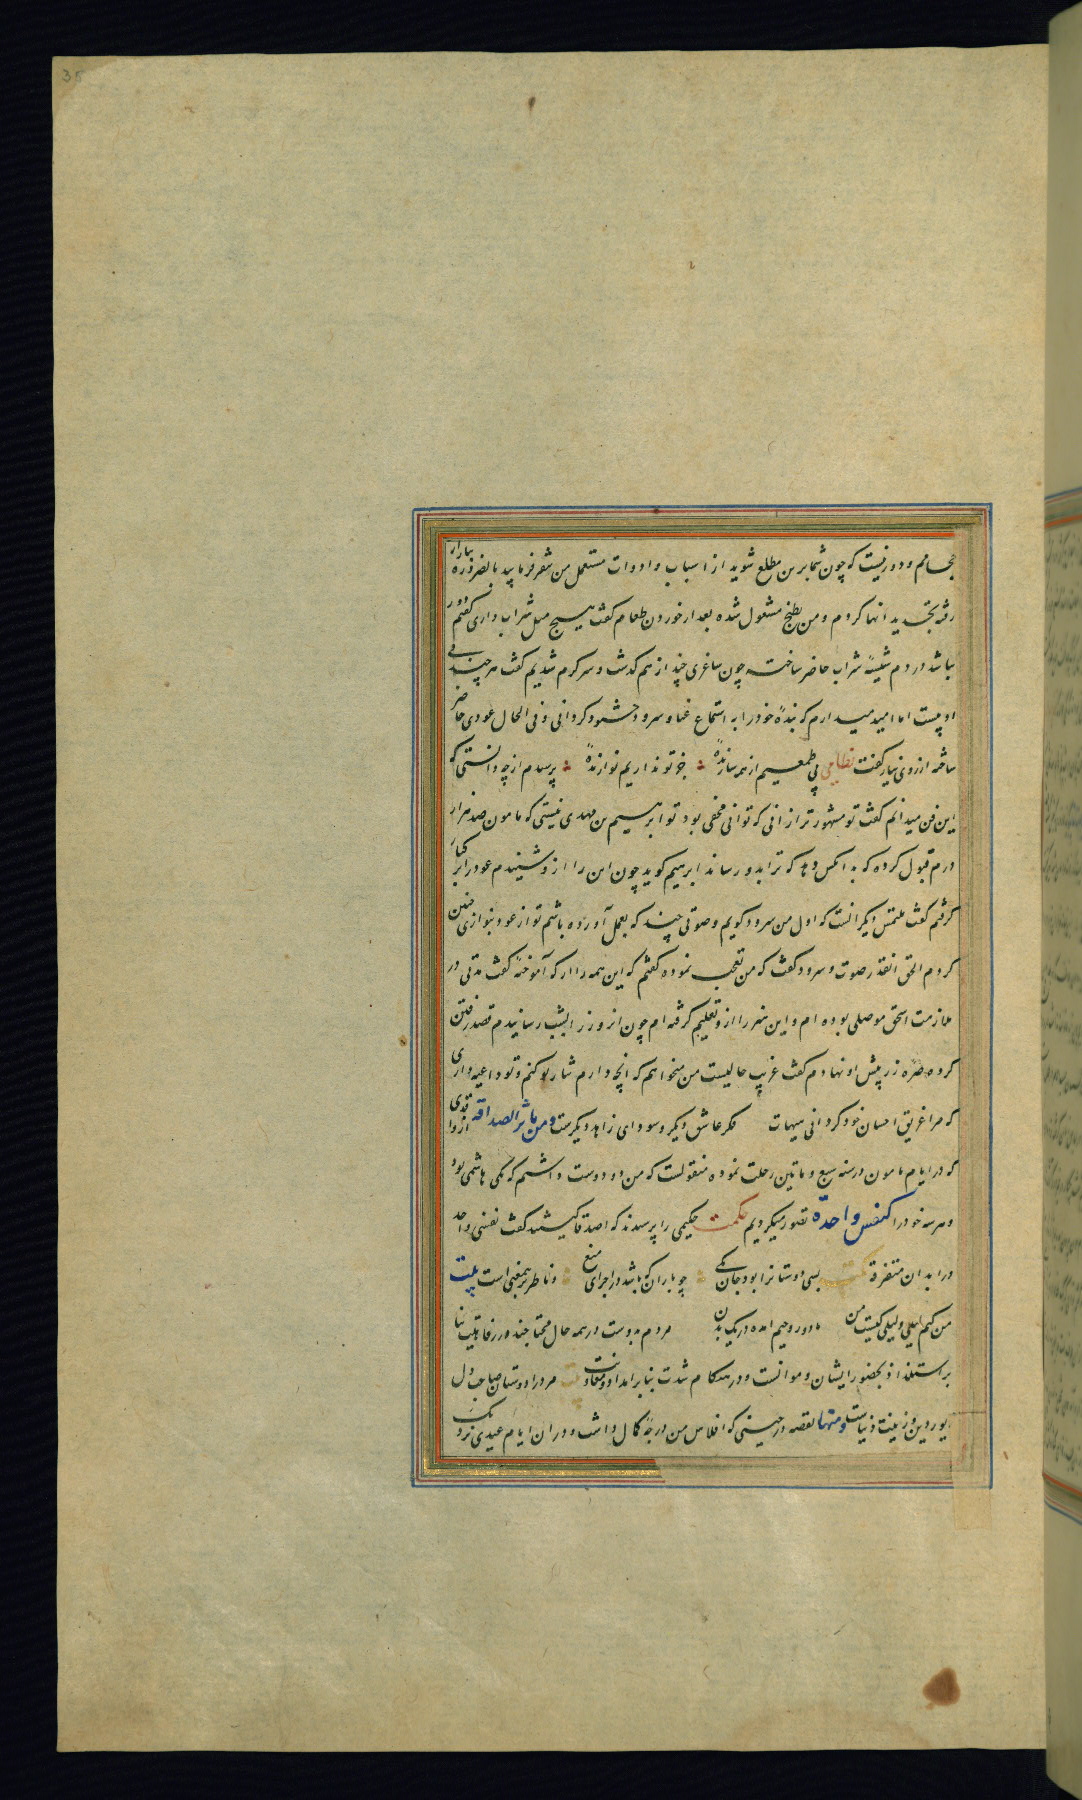 35
حجامم و دور نیست که چون شما بر من مطلع شوید از اسباب و ادوات مستعمل من متنفر فرمایید بالضروره ببازار
رفته تجدید انها کردم و من بطبخ مشغول شده بعد از خوردن طعام گفت هیچ میل شراب داری گفتم دور
نباشد در دم شیشهٔ شراب حاضر ساخته چون ساغری چند از هم گذشت و سرگرم شدیم گفت هر چند
او نیست اما امید میدارم که بندهٔ خود را به استماع غنا و سرود خشنود گردانی و فی الحال عودی حاضر
ساخته از روی نیاز گفت نظامی بی طمعیم از همه سازندهٔ جز تو نداریم نوازندهٔ پرسیدم از چه دانستی که
این فن میدانم گفت تو مشهورتر ازانی که توانی مخفی بود تو ابرهیم بن مهدی نیستی که مامون صد هزار
درم قبول کرده که به انکس دهد که ترا بدو رساند ابرهیم گوید چون این را از و شنیدم عود را بر کنار
گرفتم گفت ملتمس دیگر انست که اول من سرود گویم و صوتی چند که بعمل آورده باشم تو از عود بنوازی چنین
کردم الحق انقدر صوت و سرود گفت که من تعجب نموده گفتم که این همه را از که آموختهٔ گفت مدتی در
ملازمت اسحق موصلی بوده ام و این هنر را از و تعلیم گرفته ام چون انروز را بشب رسانیدم قصد رفتن
کرده صرّه زر پیش او نهادم گفت غریب حالیست من میخواهم که انچه دارم نثار تو کنم و تو داعیه داری
که مرا غریق احسان خود گردانی هیهات فکر عاشق دیگر و سودای زاهد دیگرست و من مآثر الصداقه واقدی از
که در ایام مامون در سنه سبع و ماتین رحلت نموده منقولست که من دو دوست داشتم که یکی هاشمی بود
و هر سه خود را کنفس واحدة تصور میکردیم حکمت حکیمی را پرسیدند که اصدقا کیستند گفت نفسی واحد
در ابدان متفرقة بسی دوستانرا بود جان یکی چو باران که باشد در اجزای میغ و ناظر بر همین معنی است بیت
من کیم لیلی و لیلی کیست من ما دو روحیم امده در یک بدن مردم بدوست در همه حال محتاجند در رفاهیت بنا
بر استلذاذ بحضور ایشان و موانست و در هنگام شدت بنابر امداد و معاونت مرد را دوستان صاحب دل
زیور دین و زینت دنیاست و منها لقصه در حینی که افلاس من درجهٔ کمال داشت و دران ایام عیدی نزدیک